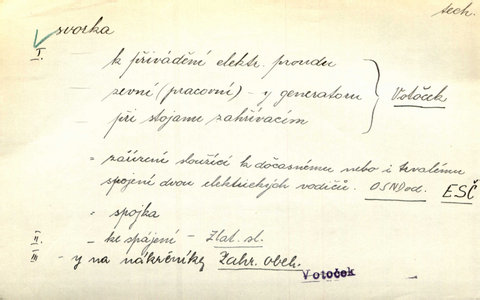 tech.
svorka
I. k přivádění elektr. proudu
zevní (pracovní) - y generatoru } Votoček
při stojanu zahřívacím
= zařízení sloužící k dočasnému nebo i trvalému
spojení dvou elektrických vodičů. OSNDod. ESČ
= spojka
II. - ke spájení - Zlat. sl.
III - y na nákrčníky Zahr. obch.
Votoček